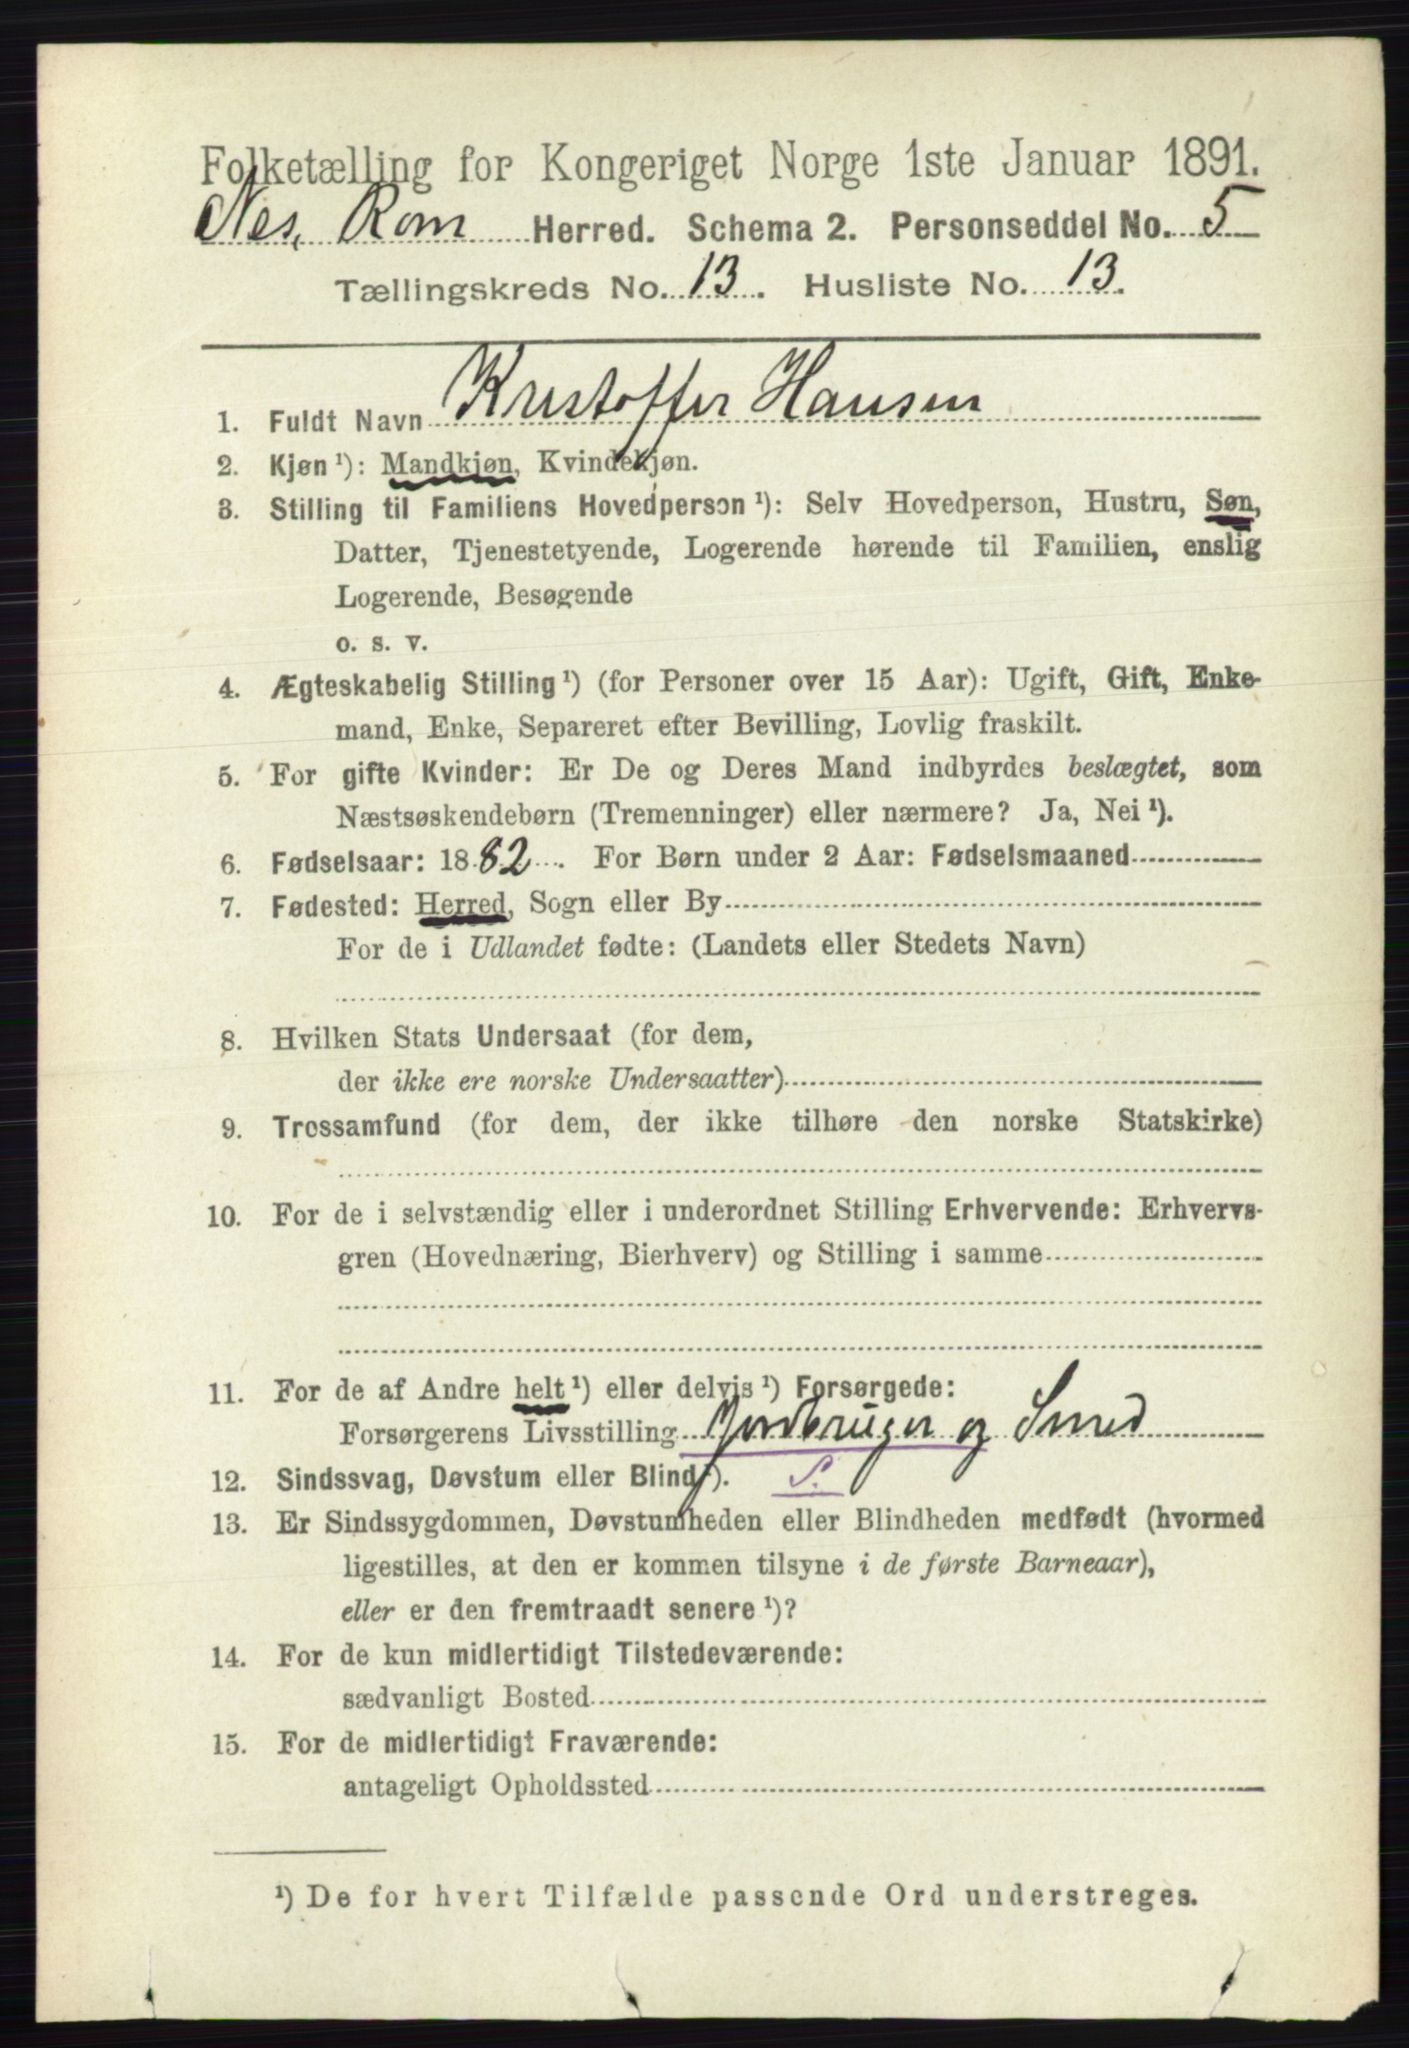 Folketælling for Kongeriget Norge 1ste Januar 1891.
Nes, Rom Herred. Schema 2. Personseddel No. 5
Tællingskreds No. 13. Husliste No. 13.
1. Fuldt Navn Kristoffer Hansen
2. Kjøn ¹): Mandkjøn, Kvindekjøn.
3. Stilling til Familiens Hovedperson ¹): Selv Hovedperson, Hustru, Søn,
Datter, Tjenestetyende, Logerende hørende til Familien, enslig
Logerende, Besøgende
o. s. v.
4. Ægteskabelig Stilling ¹) (for Personer over 15 Aar): Ugift, Gift, Enke-
mand, Enke, Separeret efter Bevilling, Lovlig fraskilt.
5. For gifte Kvinder: Er De og Deres Mand indbyrdes beslægtet, som
Næstsøskendebørn (Tremenninger) eller nærmere? Ja, Nei ¹).
6. Fødselsaar: 1882. For Børn under 2 Aar: Fødselsmaaned
7. Fødested: Herred, Sogn eller By
For de i Udlandet fødte: (Landets eller Stedets Navn)
8. Hvilken Stats Undersaat (for dem,
der ikke ere norske Undersaatter)
9. Trossamfund (for dem, der ikke tilhøre den norske Statskirke)
10. For de i selvstændig eller i underordnet Stilling Erhvervende: Erhvervs-
gren (Hovednæring, Bierhverv) og Stilling i samme
11. For de af Andre helt ¹) eller delvis ¹) Forsørgede:
Forsørgerens Livsstilling Jordbruger og Smed
12. Sindssvag, Døvstum eller Blind ¹). S.
13. Er Sindssygdommen, Døvstumheden eller Blindheden medfødt (hvormed
ligestilles, at den er kommen tilsyne i de første Barneaar),
eller er den fremtraadt senere ¹)?
14. For de kun midlertidigt Tilstedeværende:
sædvanligt Bosted
15. For de midlertidigt Fraværende:
antageligt Opholdssted
¹) De for hvert Tilfælde passende Ord understreges.